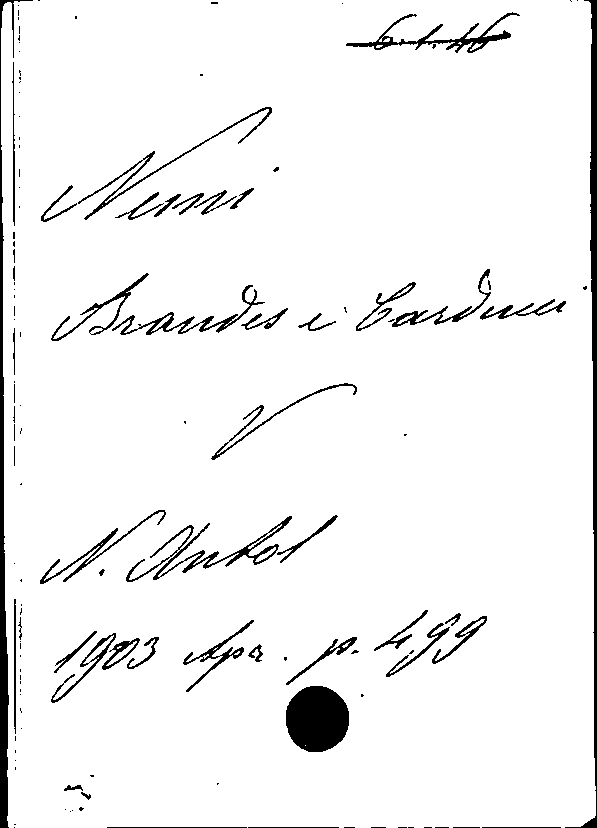 6.1.46
Nemi
Brandes e Carducci
V
N. Antol
1903 Apr. p. 499